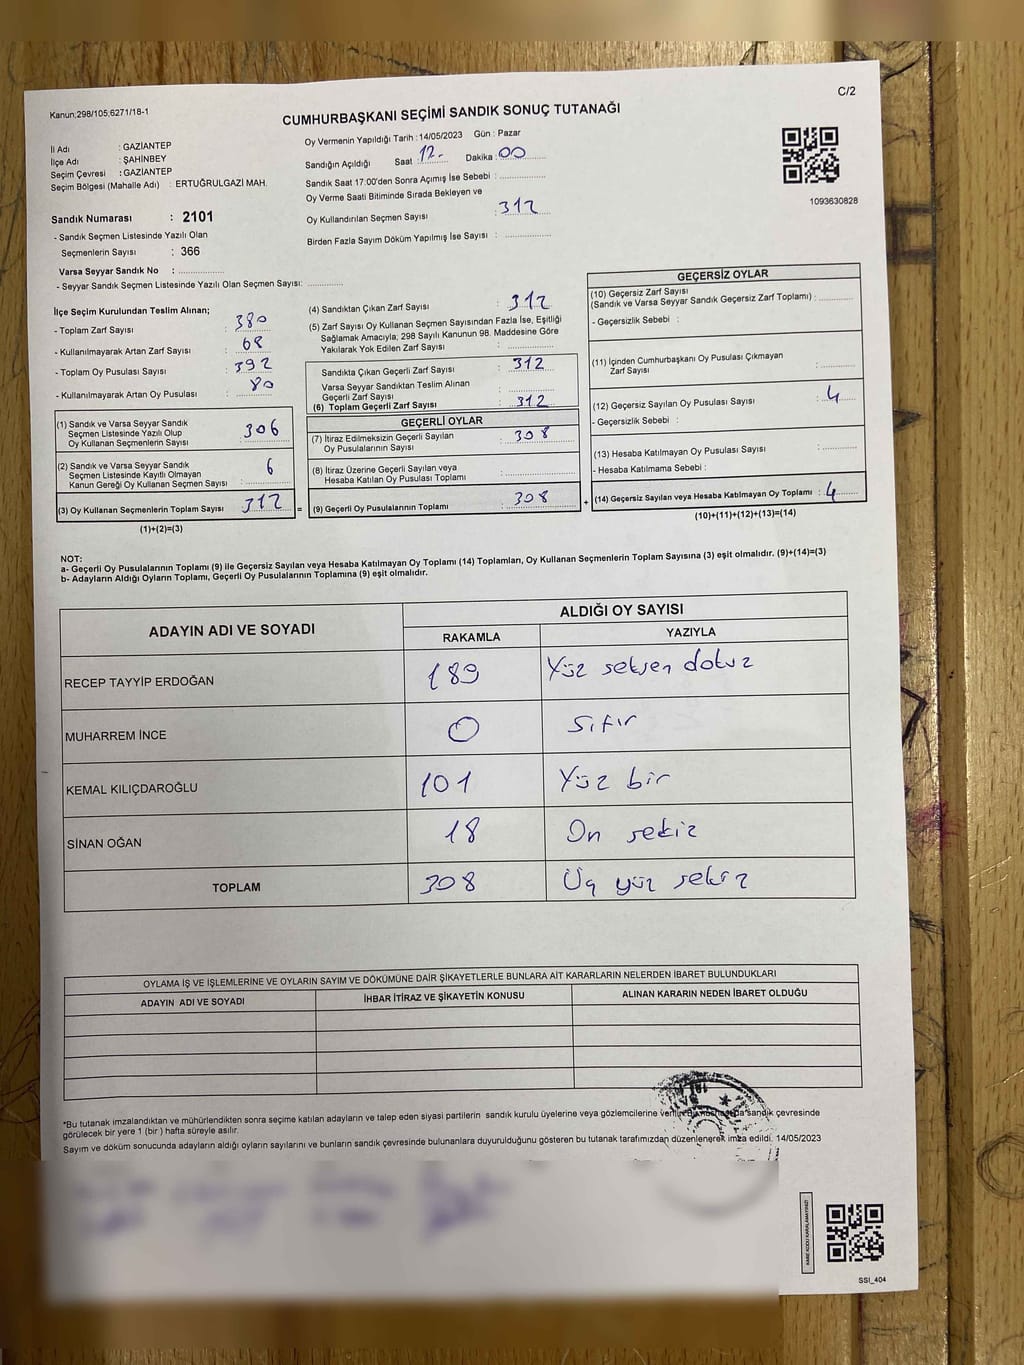 C/2
Kanun:298/105;6271/18-1
CUMHURBAŞKANI SEÇİMİ SANDIK SONUÇ TUTANAĞI
İl Adı : GAZİANTEP
İlçe Adı : ŞAHİNBEY
Seçim Çevresi : GAZİANTEP
Seçim Bölgesi (Mahalle Adı) : ERTUĞRULGAZİ MAH.
Oy Vermenin Yapıldığı Tarih : 14/05/2023 Gün : Pazar
Sandığın Açıldığı Saat : 12.- Dakika : 00
Sandık Saat 17:00'den Sonra Açımış İse Sebebi :
Oy Verme Saati Bitiminde Sırada Bekleyen ve
Oy Kullandırılan Seçmen Sayısı : 312
Birden Fazla Sayım Döküm Yapılmış İse Sayısı :
1093630828
Sandık Numarası : 2101
- Sandık Seçmen Listesinde Yazılı Olan
Seçmenlerin Sayısı : 366
Varsa Seyyar Sandık No :
- Seyyar Sandık Seçmen Listesinde Yazılı Olan Seçmen Sayısı:
İlçe Seçim Kurulundan Teslim Alınan;
- Toplam Zarf Sayısı : 380
- Kullanılmayarak Artan Zarf Sayısı : 68
- Toplam Oy Pusulası Sayısı : 392
- Kullanılmayarak Artan Oy Pusulası : 80
(1) Sandık ve Varsa Seyyar Sandık
Seçmen Listesinde Yazılı Olup
Oy Kullanan Seçmenlerin Sayısı : 306
(2) Sandık ve Varsa Seyyar Sandık
Seçmen Listesinde Kayıtlı Olmayan
Kanun Gereği Oy Kullanan Seçmen Sayısı : 6
(3) Oy Kullanan Seçmenlerin Toplam Sayısı : 312 =
(1)+(2)=(3)
(4) Sandıktan Çıkan Zarf Sayısı : 312
(5) Zarf Sayısı Oy Kullanan Seçmen Sayısından Fazla İse, Eşitliği
Sağlamak Amacıyla; 298 Sayılı Kanunun 98. Maddesine Göre
Yakılarak Yok Edilen Zarf Sayısı :
Sandıkta Çıkan Geçerli Zarf Sayısı : 312
Varsa Seyyar Sandıktan Teslim Alınan
Geçerli Zarf Sayısı :
(6) Toplam Geçerli Zarf Sayısı : 312
GEÇERLİ OYLAR
(7) İtiraz Edilmeksizin Geçerli Sayılan
Oy Pusulalarının Sayısı : 308
(8) İtiraz Üzerine Geçerli Sayılan veya
Hesaba Katılan Oy Pusulası Toplamı :
(9) Geçerli Oy Pusulalarının Toplamı : 308 +
GEÇERSİZ OYLAR
(10) Geçersiz Zarf Sayısı
(Sandık ve Varsa Seyyar Sandık Geçersiz Zarf Toplamı) :
- Geçersizlik Sebebi :
(11) İçinden Cumhurbaşkanı Oy Pusulası Çıkmayan
Zarf Sayısı :
(12) Geçersiz Sayılan Oy Pusulası Sayısı : 4
- Geçersizlik Sebebi :
(13) Hesaba Katılmayan Oy Pusulası Sayısı :
- Hesaba Katılmama Sebebi :
(14) Geçersiz Sayılan veya Hesaba Katılmayan Oy Toplamı : 4
(10)+(11)+(12)+(13)=(14)
NOT:
a- Geçerli Oy Pusulalarının Toplamı (9) ile Geçersiz Sayılan veya Hesaba Katılmayan Oy Toplamı (14) Toplamları, Oy Kullanan Seçmenlerin Toplam Sayısına (3) eşit olmalıdır. (9)+(14)=(3)
b- Adayların Aldığı Oyların Toplamı, Geçerli Oy Pusulalarının Toplamına (9) eşit olmalıdır.
ADAYIN ADI VE SOYADI
ALDIĞI OY SAYISI
RAKAMLA YAZIYLA
RECEP TAYYİP ERDOĞAN 189 Yüz seksen dokuz
MUHARREM İNCE 0 Sıfır
KEMAL KILIÇDAROĞLU 101 Yüz bir
SİNAN OĞAN 18 On sekiz
TOPLAM 308 Üç yüz sekiz
OYLAMA İŞ VE İŞLEMLERİNE VE OYLARIN SAYIM VE DÖKÜMÜNE DAİR ŞİKAYETLERLE BUNLARA AİT KARARLARIN NELERDEN İBARET BULUNDUKLARI
ADAYIN ADI VE SOYADI İHBAR İTİRAZ VE ŞİKAYETİN KONUSU ALINAN KARARIN NEDEN İBARET OLDUĞU
*Bu tutanak imzalandıktan ve mühürlendikten sonra seçime katılan adayların ve talep eden siyasi partilerin sandık kurulu üyelerine veya gözlemcilerine sandık çevresinde
görülecek bir yere 1 (bir ) hafta süreyle asılır.
Sayım ve döküm sonucunda adayların aldığı oyların sayılarını ve bunların sandık çevresinde bulunanlara duyurulduğunu gösteren bu tutanak tarafımızdan düzenlenerek imza edildi. 14/05/2023
KARE KODU KARALAMAYINIZ!
SSI_404